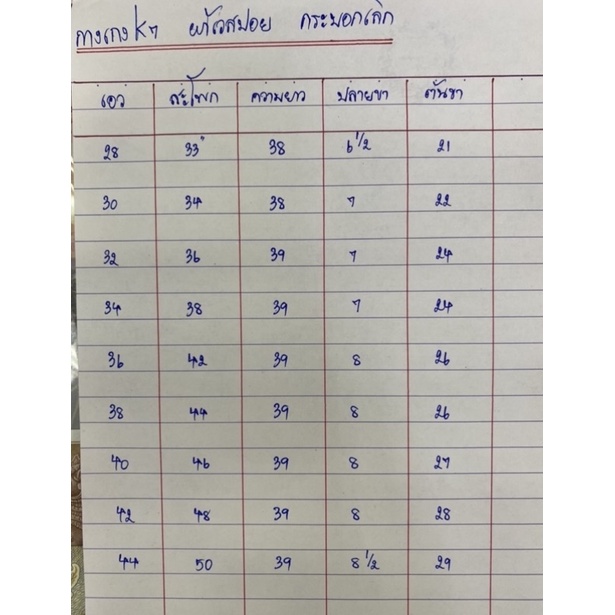 กางเกง ผ้าวสปอย กระบอกเล็ก
เอว สะโพก ความยาว ปลายขา ต้นขา
28 33" 38 6 1/2 21
30 34 38 7 22
32 36 39 7 24
34 38 39 7 24
36 42 39 8 26
38 44 39 8 26
40 46 39 8 27
42 48 39 8 28
44 50 39 8 1/2 29